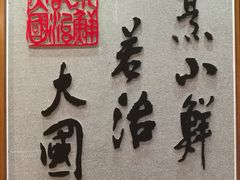 烹小鮮
若治
大國